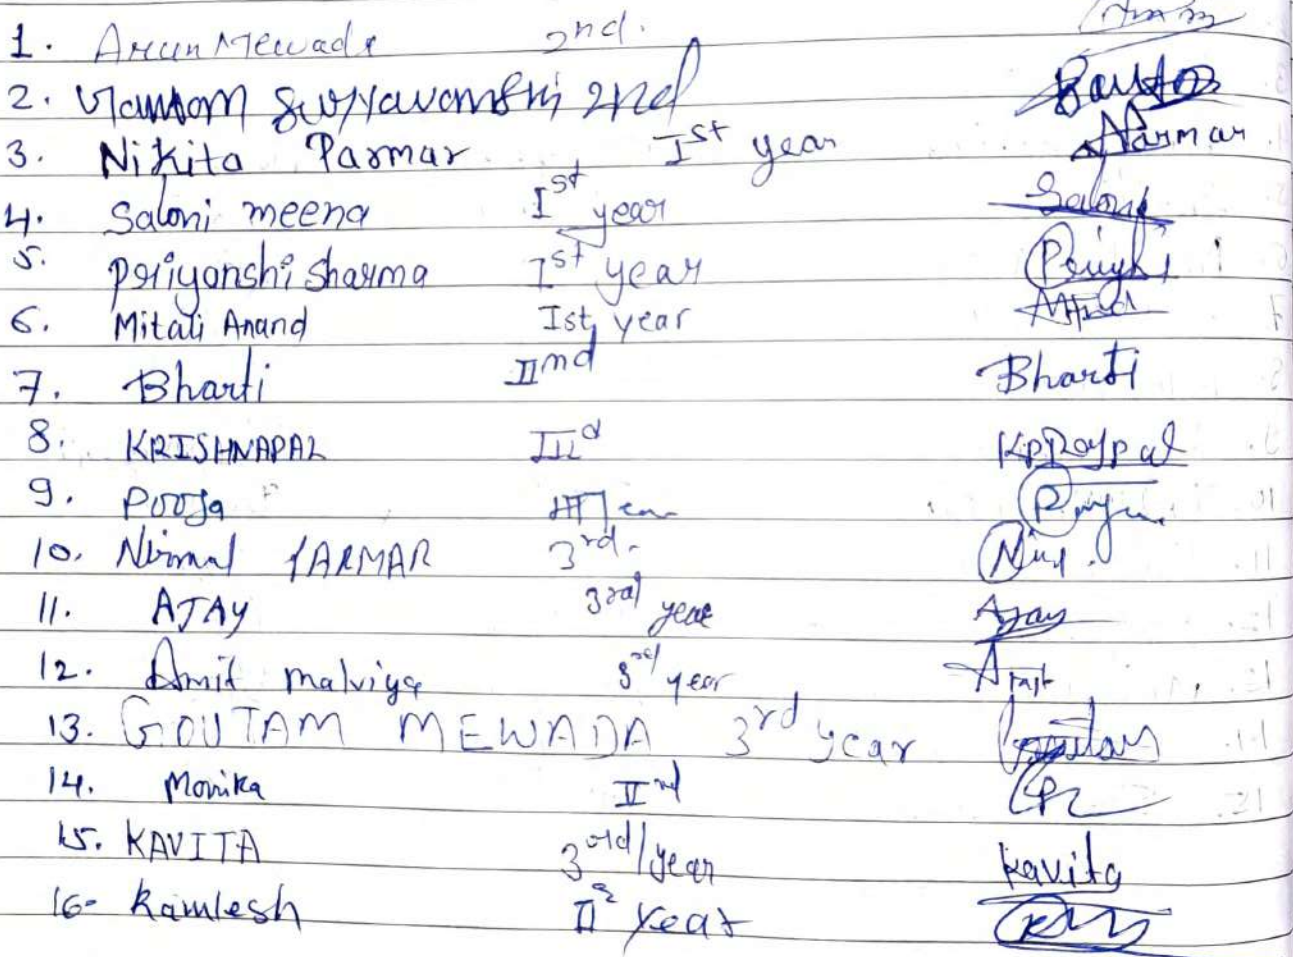 1. Arun Mewada 2nd.
2. Suryavanshi 2nd
3. Nikita Parmar Ist year Parmar
4. Saloni meena Ist year Saloni
5. Priyanshi Sharma Ist year
6. Mitali Anand Ist year
7. Bharti IInd Bharti
8. KRISHNAPAL IIId
9. Pooja
10. Nirmal PARMAR 3rd.
11. AJAY 3rd year Ajay
12. Amit malviya 3rd year Amit
13. GOUTAM MEWADA 3rd year Goutam
14. Monika IInd
15. KAVITA 3rd/year Kavita
16- Kamlesh II year